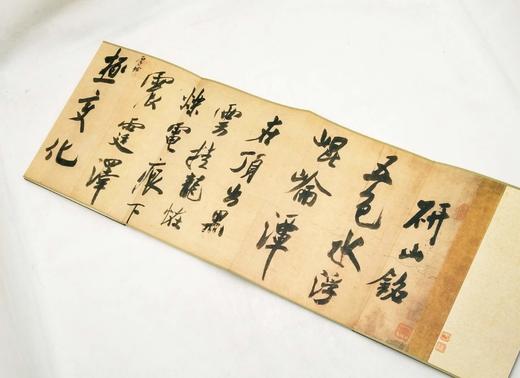 研山銘
五色水浮
崐崘潭
在頂出黑
雲挂龍怪
爍電痕下
震霆澤
極變化